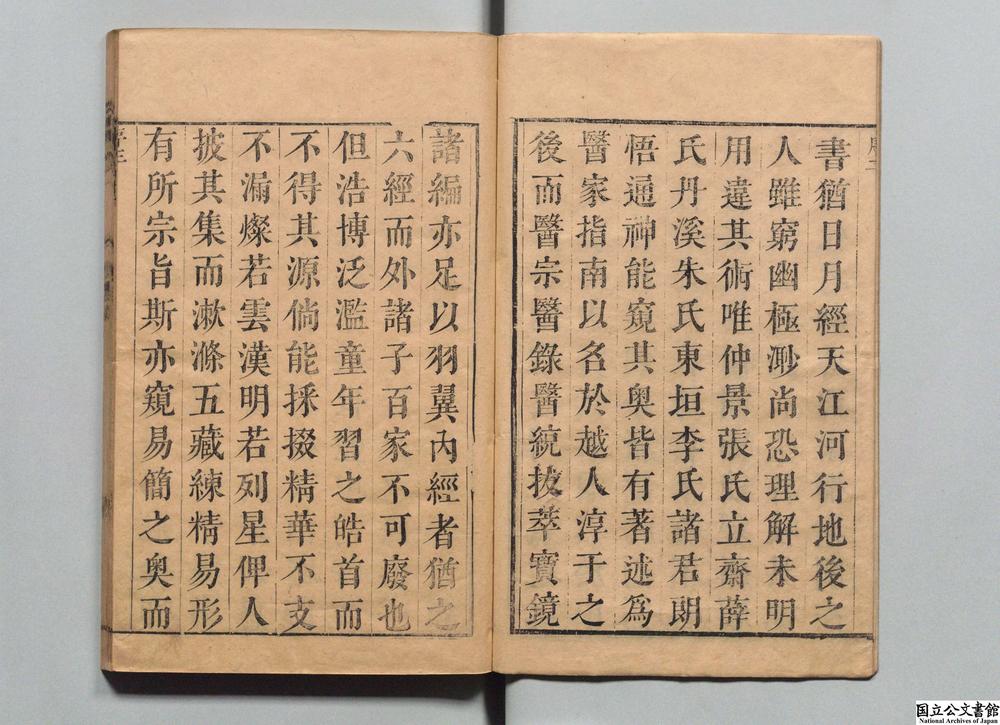 書猶日月經天江河行地後之
人雖窮幽極渺尚恐理解未明
用違其術唯仲景張氏立齋薛
氏丹溪朱氏東垣李氏諸君朗
悟通神能窺其奥皆有著述為
醫家指南以名於越人淳于之
後而醫宗醫錄醫統拔萃寶鏡
諸編亦足以羽翼内經者猶之
六經而外諸子百家不可廢也
但浩博泛濫童年習之皓首而
不得其源倘能採掇精華不支
不漏燦若雲漢明若列星俾人
披其集而漱滌五藏練精易形
有所宗旨斯亦窺易簡之奥而
国立公文書館
National Archives of Japan